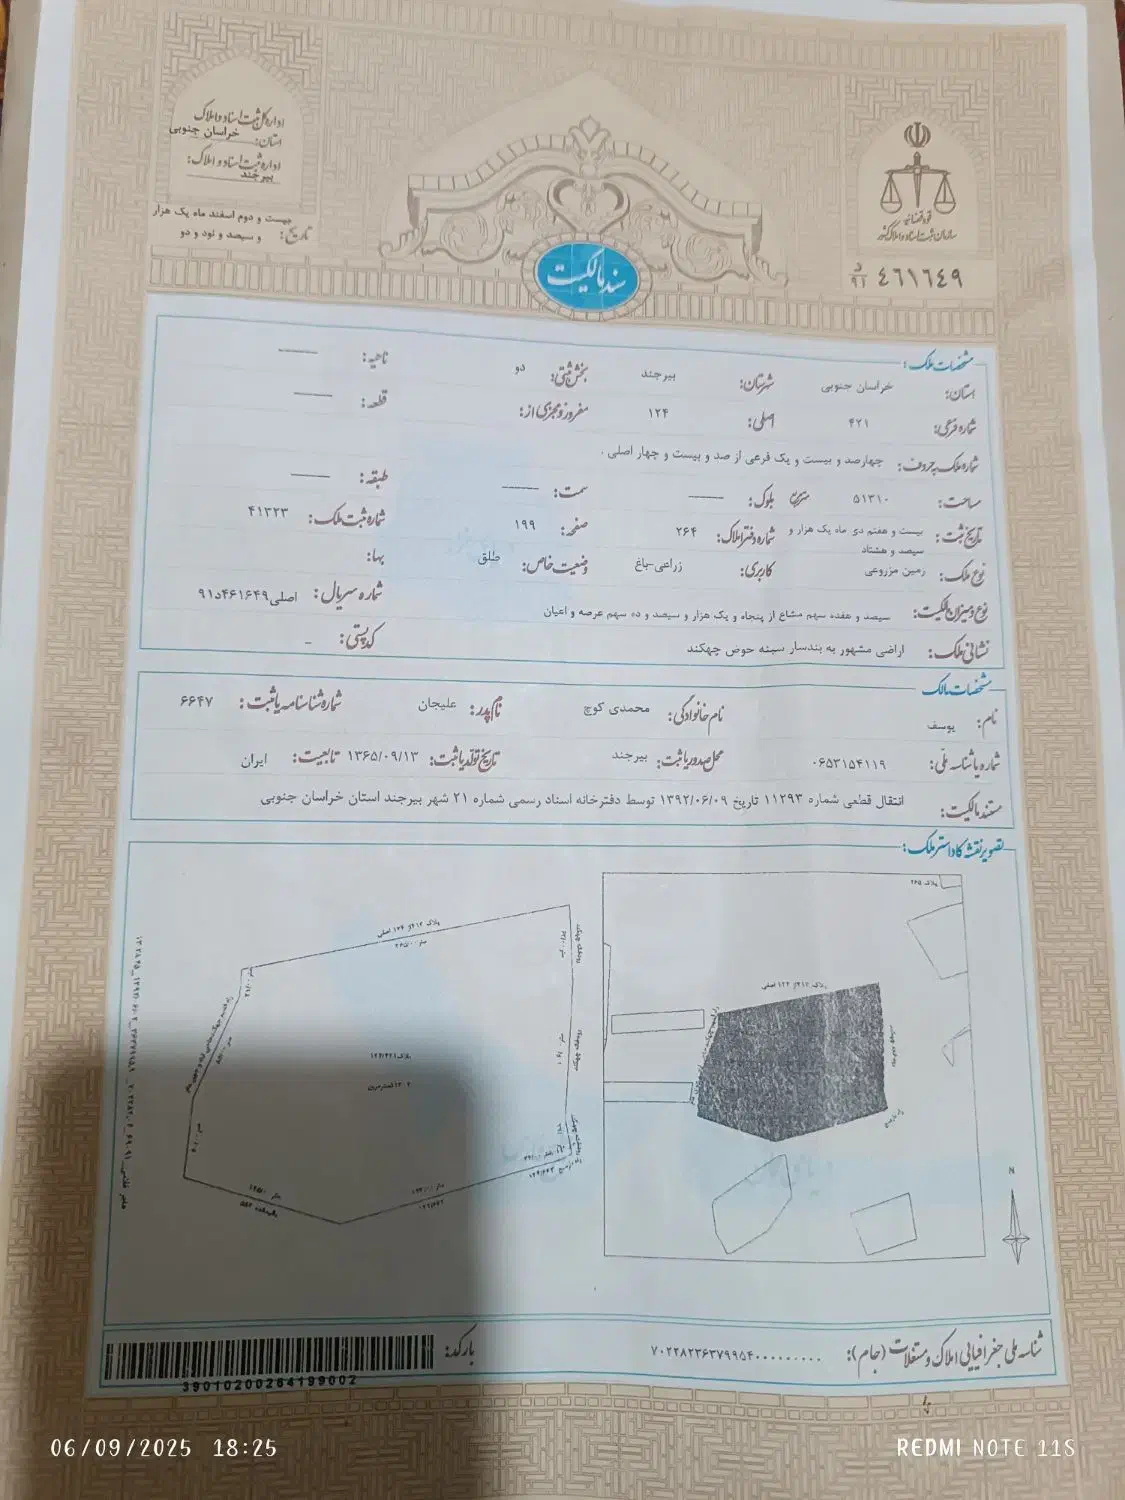 قوه قضائیه
سازمان ثبت اسناد و املاک کشور
۴۶۱۶۴۹ د/۹۱
اداره کل ثبت اسناد و املاک
استان: خراسان جنوبی
اداره ثبت اسناد و املاک:
بیرجند
تاریخ: بیست و دوم اسفند ماه یک هزار
و سیصد و نود و دو
سند مالکیت
مشخصات ملک:
استان: خراسان جنوبی شهرستان: بیرجند بخش ثبتی: دو ناحیه: ——
شماره فرعی: ۴۲۱ اصلی: ۱۲۴ مفروز و مجزی از: قطعه: ——
شماره ملک به حروف: چهارصد و بیست و یک فرعی از صد و بیست و چهار اصلی .
مساحت: ۵۱۳۱۰ مترمربع بلوک: —— سمت: —— طبقه: ——
تاریخ ثبت: بیست و هفتم دی ماه یک هزار و سیصد و هشتاد شماره دفتر املاک: ۲۶۴ صفحه: ۱۹۹ شماره ثبت ملک: ۴۱۳۲۳
نوع ملک: زمین مزروعی کاربری: زراعی-باغ وضعیت خاص: طلق بها:
نوع و میزان مالکیت: سیصد و هفده سهم مشاع از پنجاه و یک هزار و سیصد و ده سهم عرصه و اعیان شماره سریال: اصلی۴۶۱۶۴۹د۹۱
نشانی ملک: اراضی مشهور به بندسار سینه حوض چهکند کد پستی: _
مشخصات مالک
نام: یوسف نام خانوادگی: محمدی کوچ نام پدر: علیجان شماره شناسنامه یا ثبت: ۶۶۴۷
شماره یا شناسه ملی: ۰۶۵۳۱۵۴۱۱۹ محل صدور یا ثبت: بیرجند تاریخ تولد یا ثبت: ۱۳۶۵/۰۹/۱۳ تابعیت: ایران
مستند مالکیت: انتقال قطعی شماره ۱۱۲۹۳ تاریخ ۱۳۹۲/۰۶/۰۹ توسط دفترخانه اسناد رسمی شماره ۲۱ شهر بیرجند استان خراسان جنوبی
تصویر نقشه کاداستر ملک:
پلاک ۲۶۵
پلاک ۴۱۲از ۱۲۴ اصلی
N
پلاک ۴۱۲از ۱۲۴ اصلی
پلاک۱۲۴/۴۲۱
شناسه ملی جغرافیایی املاک و مستغلات (جام): ۷۰۲۲۸۲۳۶۳۷۹۹۵۴۰۰۰۰۰۰۰۰۰۰
بارکد:
39010200264199002
06/09/2025 18:25
REDMI NOTE 11S